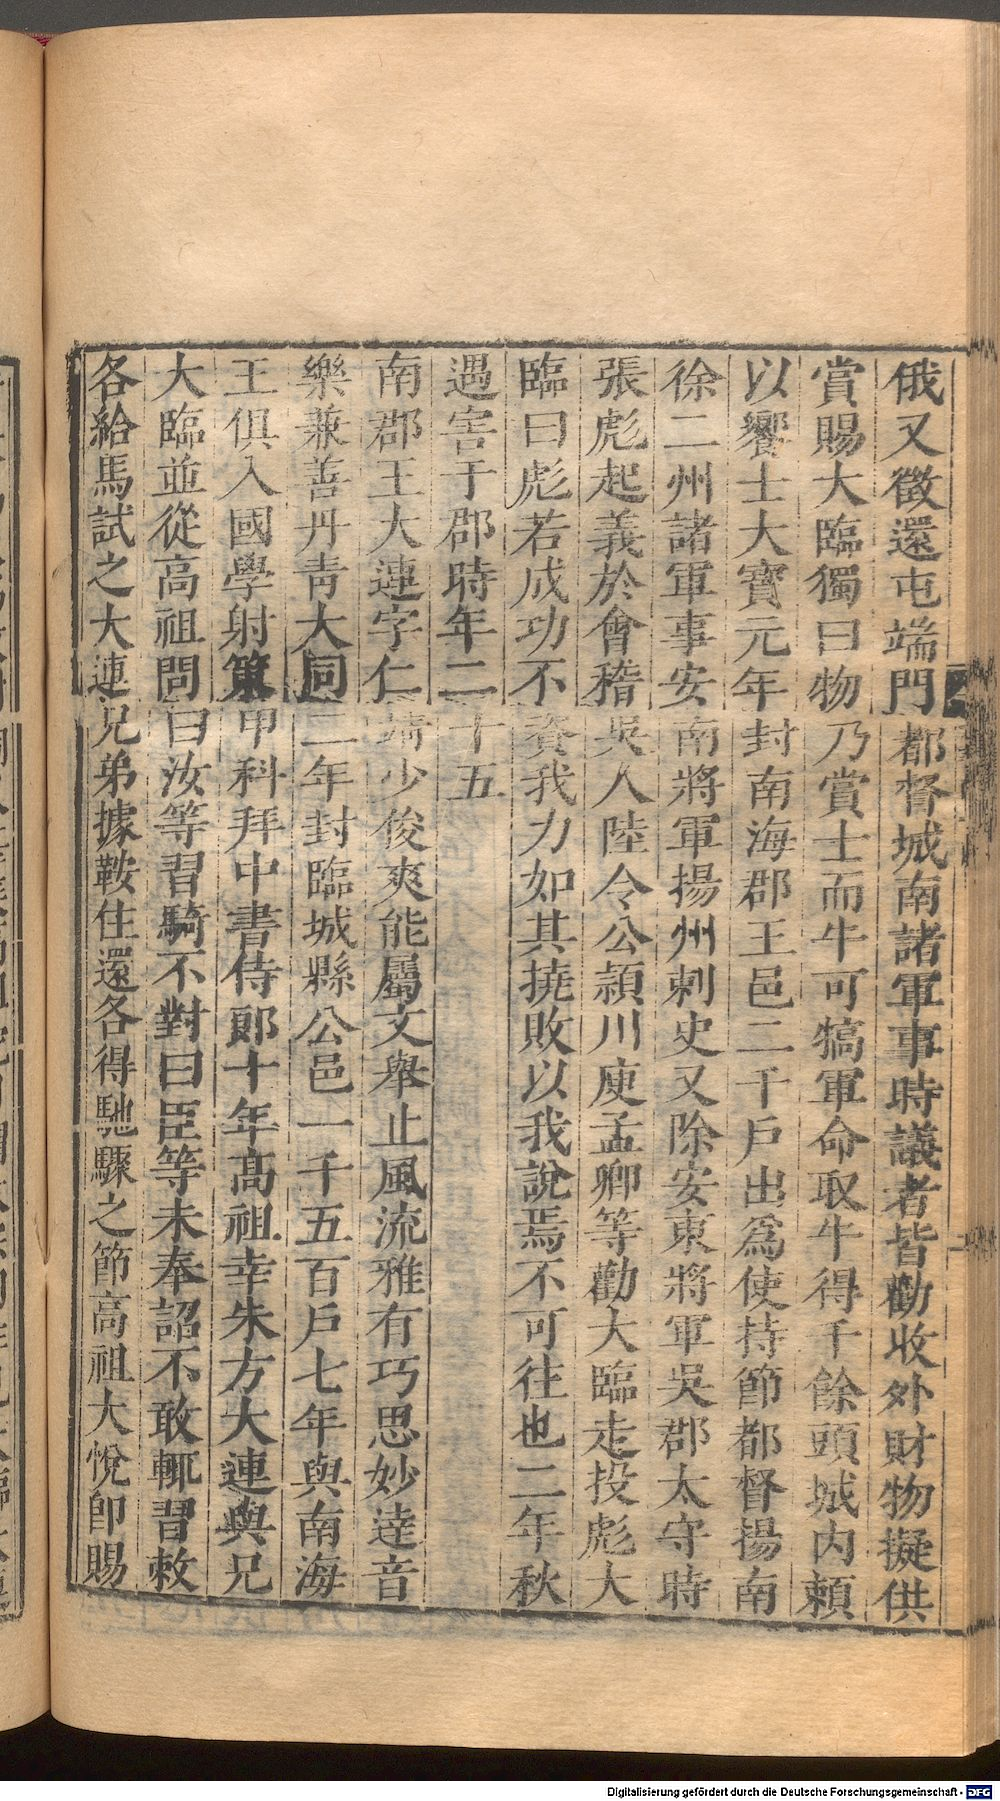 俄又徵還屯端門都督城南諸軍事時議者皆勸收外財物擬供
賞賜大臨獨曰物乃賞士而牛可犒軍命取牛得千餘頭城內賴
以饗士大寶元年封南海郡王邑二千戶出爲使持節都督揚南
徐二州諸軍事安南將軍揚州刺史又除安東將軍吳郡太守時
張彪起義於會稽吳人陸令公頴川庾孟卿等勸大臨走投彪大
臨曰彪若成功不資我力如其撓敗以我說焉不可往也二年秋
遇害于郡時年二十五
南郡王大連字仁靖少俊爽能屬文舉止風流雅有巧思妙達音
樂兼善丹青大同二年封臨城縣公邑一千五百戶七年與南海
王俱入國學射策甲科拜中書侍郎十年高祖幸朱方大連與兄
大臨並從高祖問曰汝等習騎不對曰臣等未奉詔不敢輒習敕
各給馬試之大連兄弟據鞍往還各得馳驟之節高祖大悅卽賜
Digitalisierung gefördert durch die Deutsche Forschungsgemeinschaft - DFG